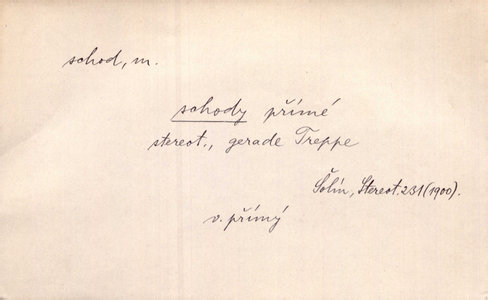 schod, m.
schody přímé
stereot., gerade Treppe
Šolín, Stereot. 231 (1900).
v. přímý